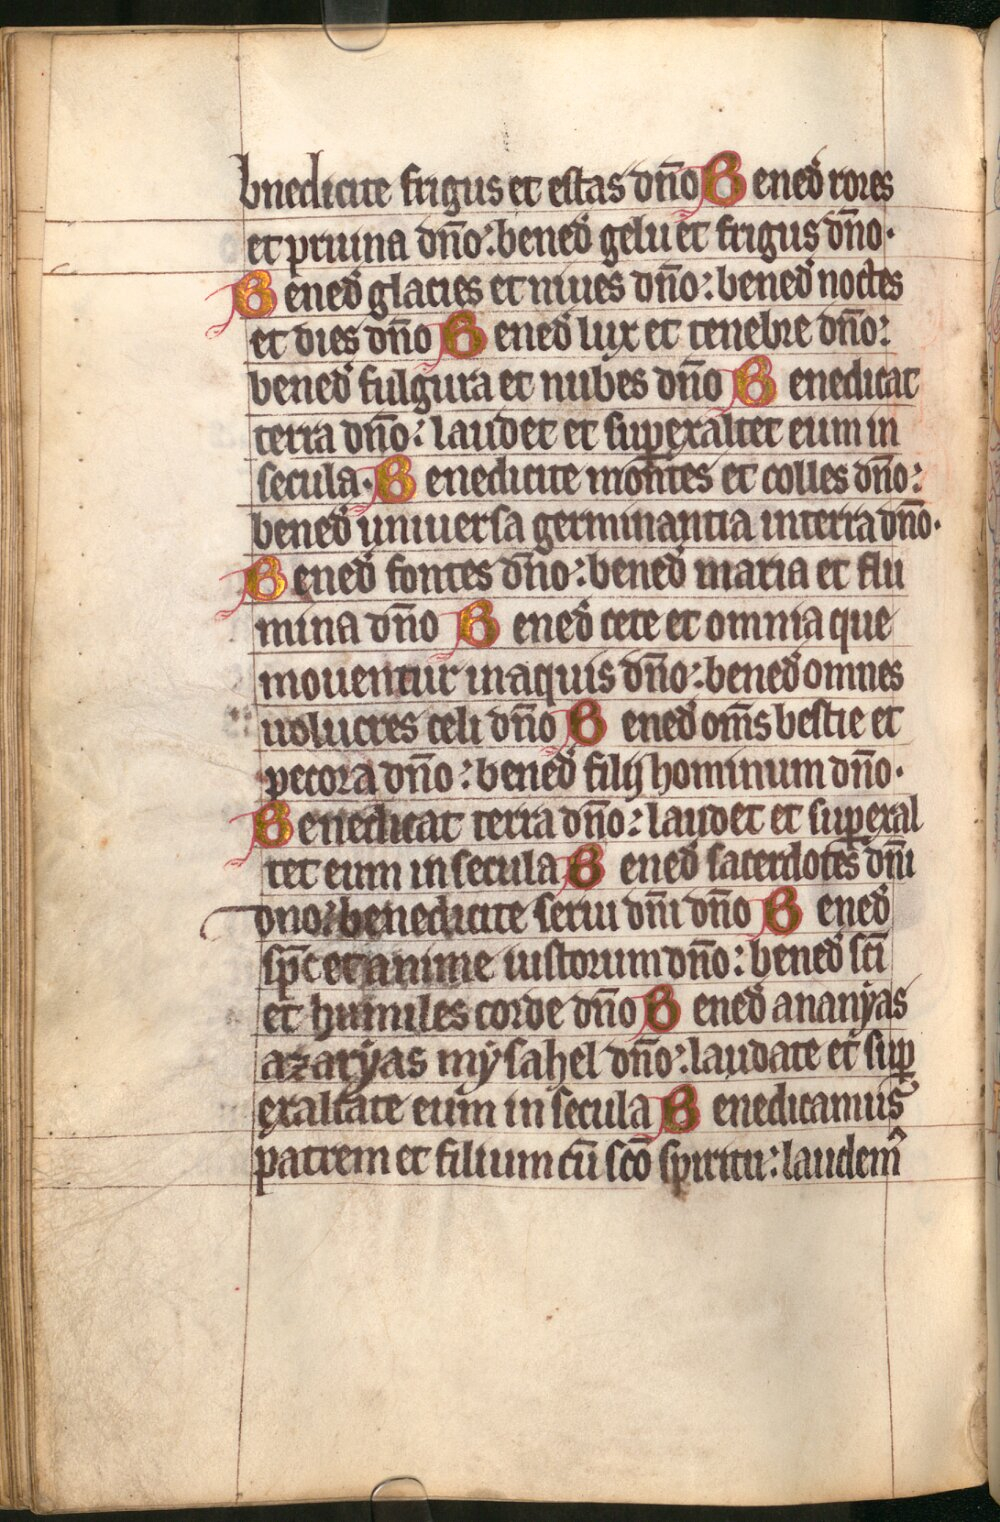 bnedicite frigus et estas dn̄o Bened̉ rores
et pruina dn̄o: bened̉ gelu et frigus dn̄o.
Bened̉ glacies et niues dn̄o: bened̉ noctes
et dies dn̄o Bened̉ lux et tenebre dn̄o:
bened̉ fulgura et nubes dn̄o Benedicat
terra dn̄o: laudet et suꝑexaltet eum in
secula. Benedicite montes et colles dn̄o:
bened̉ uniuersa germinantia in terra dn̄o.
Bened̉ fontes dn̄o: bened̉ maria et flu
mina dn̄o Bened̉ cete et omnia que
mouentur in aquis dn̄o: bened̉ omnes
uolucres celi dn̄o Bened̉ om̄s bestie et
pecora dn̄o: bened̉ filij hominum dn̄o.
Benedicat terra dn̄o: laudet et suꝑexal
tet eum in secula Bened̉ sacerdotes dn̄i
dno: benedicite serui dn̄i dn̄o Bened̉
sp̄c et anime iustorum dn̄o: bened̉ sc̄i
et humiles corde dn̄o Bened̉ ananyas
azaryas mysahel dn̄o: laudate et suꝑ
exaltate eum in secula Benedicamus
patrem et filium cū sc̄o spiritu: laudem᷒